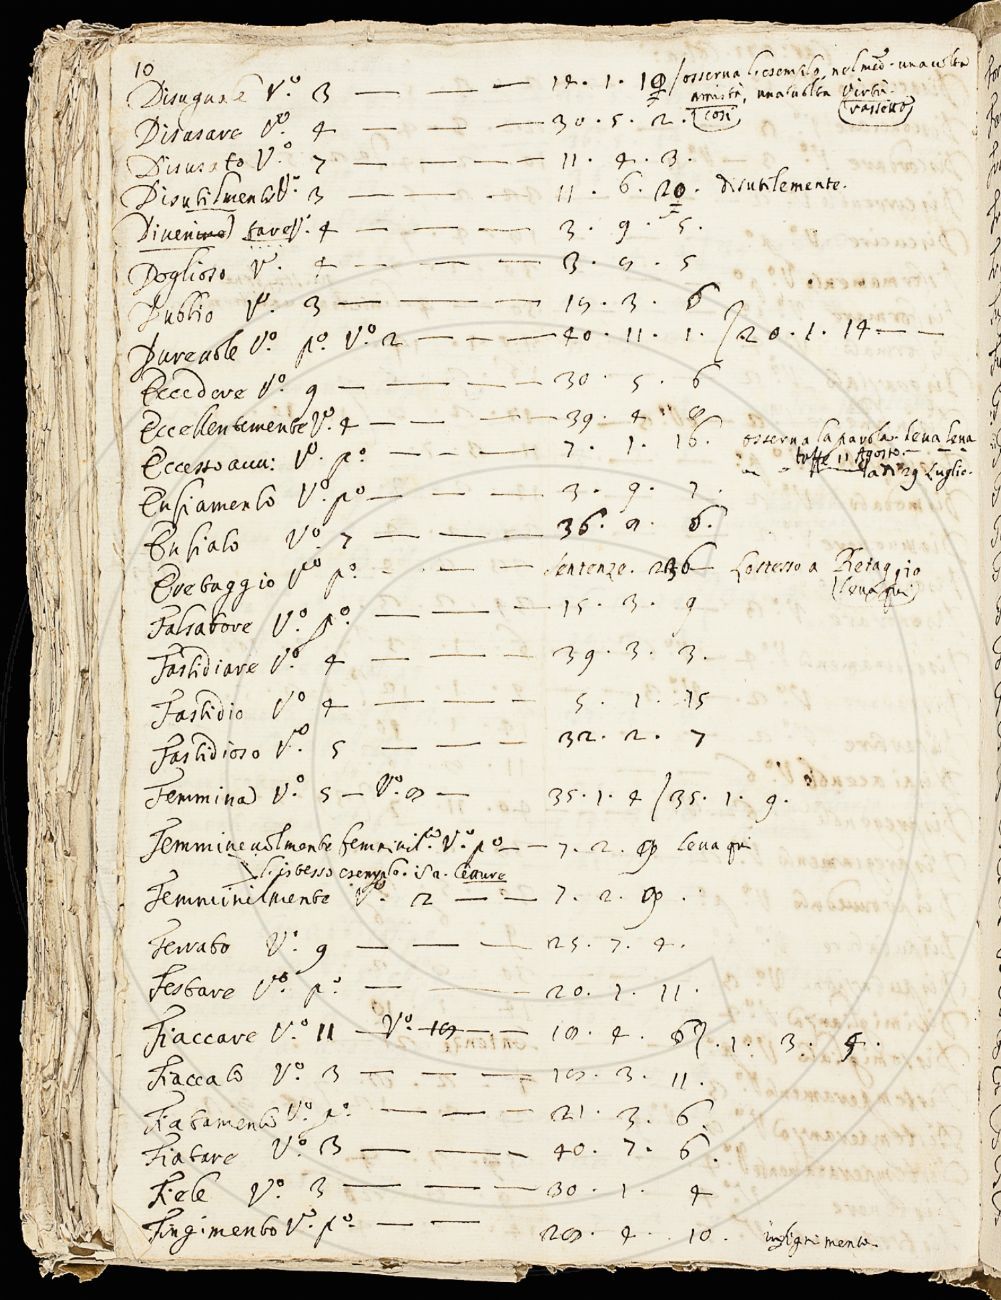 10
Disuguale V.º 3 — — — 14 . 1 . 10 / osserua l'esemplo, nel med.º una uolta
amistà, una uolta virtù.
Disusare V.º 4 — — — 30 . 5 . 2 . così rassetto
Disusato V.º 7 — — — 11 . 4 . 3 .
Disutilmento V.º 3 — — — 11 . 6 . 20 . disutilemente.
Diuenire V.º 4 — — — 3 . 9 . 5 .
Doglioso V.º 4 — — — 3 . 9 . 5
Dubbio V.º 3 — — — 19 . 3 . 6
Dureuole V.º p.º V.º 2 — — — 40 . 11 . 1 . / 20 . 1 . 14 — —
Eccedere V.º 9 — — — 30 . 5 . 6
Eccellentemente V.º 4 — — — 39 . 4 . 8
Eccesso auu: V.º p.º — — — 7 . 1 . 16 . osserua la parola. leua leua
11 Agosto. —
29 Luglio.
Enfiamento V.º p.º — — — 3 . 9 . 7 .
Enfiato V.º 7 — — — 36 . 9 . 6 .
Eretaggio V.º p.º — — — Sentenze. 236 Lo stesso a Retaggio
(leua qui)
Falsatore V.º p.º — — — 15 . 3 . 9
Fastidiare V.º 4 — — — 39 . 3 . 3 .
Fastidio V.º 4 — — — 5 . 1 . 15
Fastidioso V.º 5 — — — 32 . 2 . 7
Femmina V.º 5 — V.º 8 — 35 . 1 . 4 / 35 . 1 . 9 .
Femmineuolmente femminil.º V.º p.º — — 7 . 2 . 9 leua qui
l'istesso esemplo.
Femminilmente V.º 2 — — 7 . 2 . 9 .
Ferrato V.º 9 — — — 25 . 7 . 4 .
Festare V.º p.º — — — 20 . 7 . 11 .
Fiaccare V.º 11 — V.º — — 18 . 4 . 6 / . 1 . 3 . 4 .
Fiaccato V.º 3 — — — 19 . 3 . 11 .
Fiatamento V.º p.º — — — 21 . 3 . 6 .
Fiatare V.º 3 — — — 40 . 7 . 6 .
Fiele V.º 3 — — — 30 . 1 . 4
Fingimento V.º p.º — — 28 . 4 . 10 . infignimento.